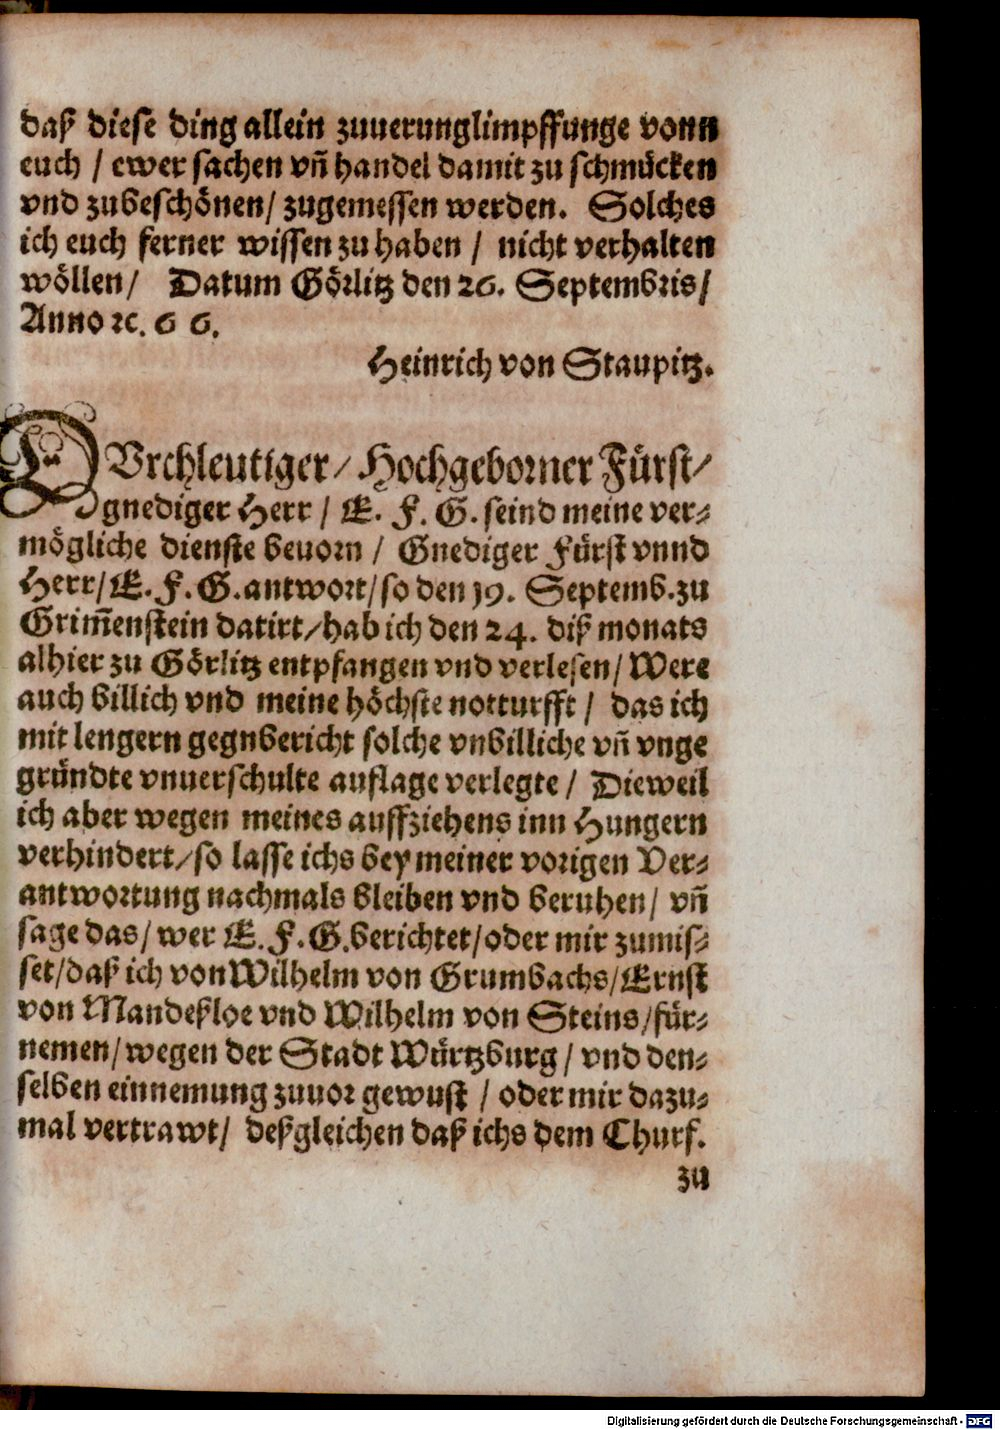 daß diese ding allein zuuerunglimpffunge vonn
euch / ewer sachen vn̄ handel damit zu schmücken
vnd zubeschönen / zugemessen werden. Solches
ich euch ferner wissen zu haben / nicht verhalten
wöllen / Datum Görlitz den 26. Septembris /
Anno ꝛc. 6 6.
Heinrich von Staupitz.
DVrchleutiger / Hochgeborner Fürst /
gnediger Herr / E. F. G. seind meine ver⸗
mögliche dienste beuorn / Gnediger Fürst vnnd
Herr / E. F. G. antwort / so den 19. Septemb. zu
Grim̄enstein datirt / hab ich den 24. diß monats
alhier zu Görlitz entpfangen vnd verlesen / Were
auch billich vnd meine höchste notturfft / das ich
mit lengern gegnbericht solche vnbilliche vn̄ vnge
gründte vnuerschulte auflage verlegte / Dieweil
ich aber wegen meines auffziehens inn Hungern
verhindert / so lasse ichs bey meiner vorigen Ver⸗
antwortung nachmals bleiben vnd beruhen / vn̄
sage das / wer E. F. G. berichtet / oder mir zumis⸗
set / daß ich von Wilhelm von Grumbachs / Ernst
von Mandeßloe vnd Wilhelm von Steins / für⸗
nemen / wegen der Stadt Würtzburg / vnd den⸗
selben einnemung zuuor gewust / oder mir dazu⸗
mal vertrawt / deßgleichen daß ichs dem Churf.
zu
Digitalisierung gefördert durch die Deutsche Forschungsgemeinschaft - DFG